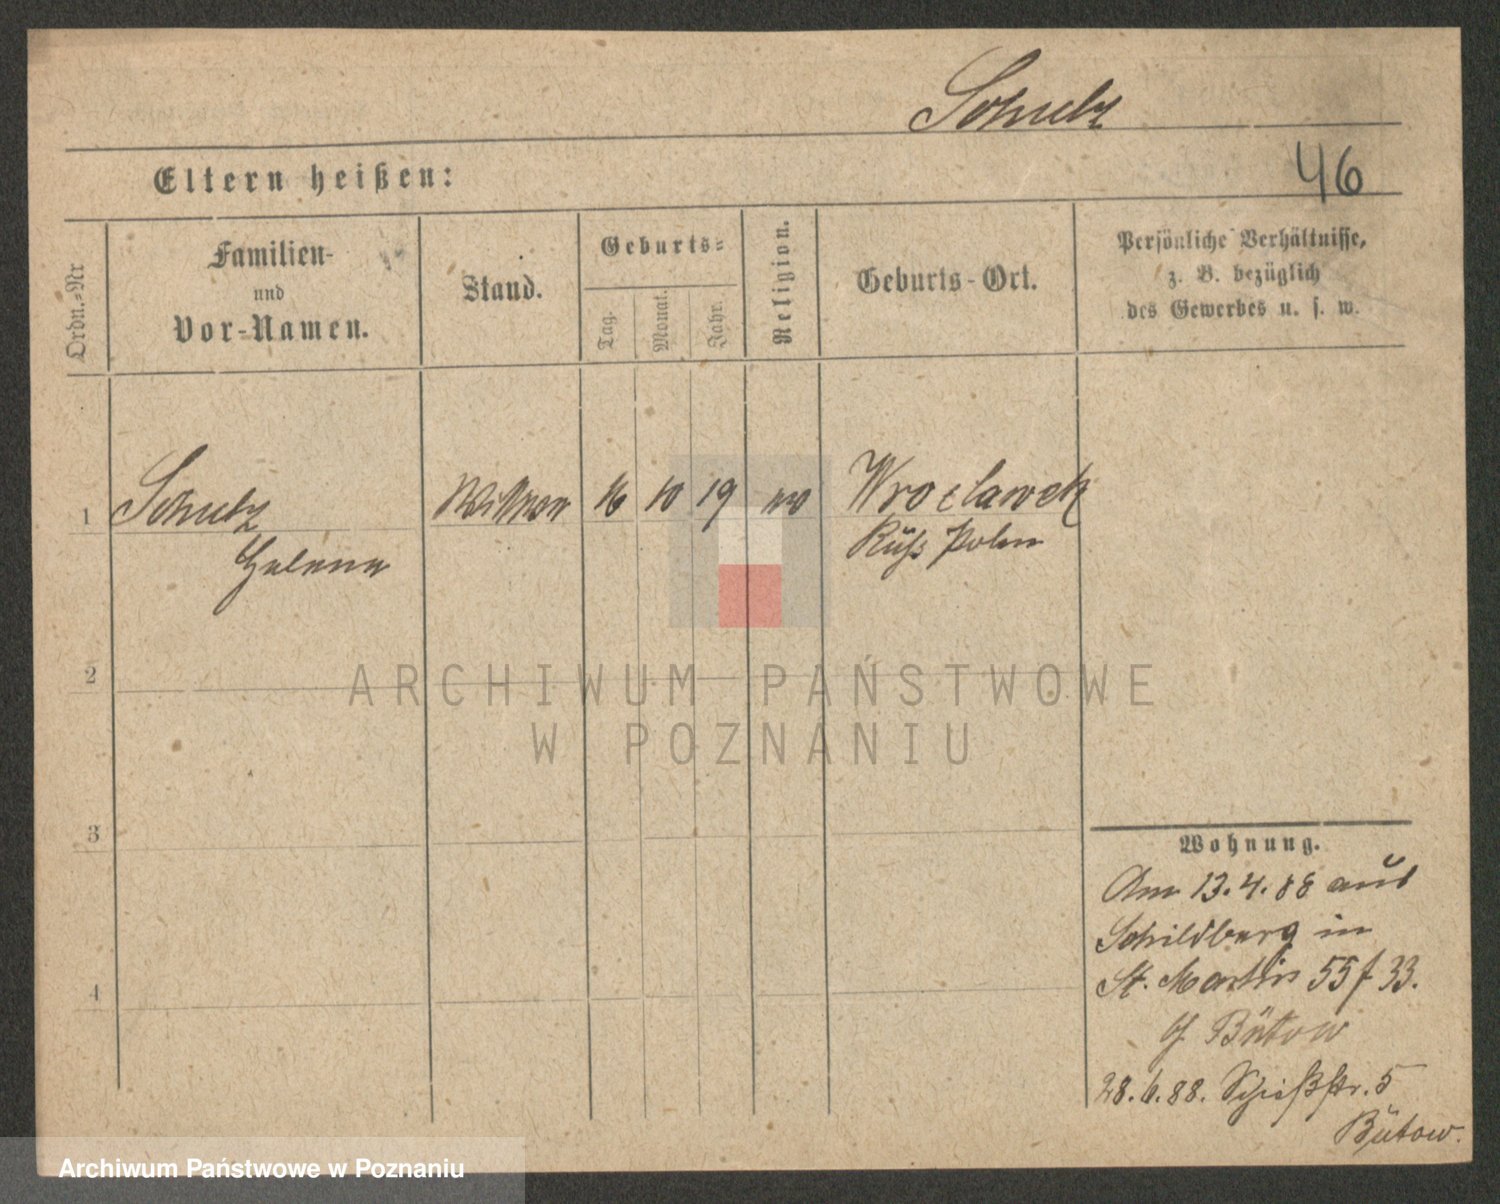 Schulz
46
Eltern heißen:
Ordn.-Nr
Familien-
und
Vor-Namen.
Stand.
Geburts-
Tag.
Monat.
Jahr.
Religion.
Geburts-Ort.
Persönliche Verhältnisse,
z. B. bezüglich
des Gewerbes u. s. w.
1 Schulz 16 10 19 Wroclawek
Helena Russ Polen
2
ARCHIWUM PAŃSTWOWE
W POZNANIU
3
4
Wohnung.
Am 13.4.88 aus
Schildberg in
St. Martin 55 f 33.
Bütow
28.6.88. Schießstr. 5
Bütow.
Archiwum Państwowe w Poznaniu